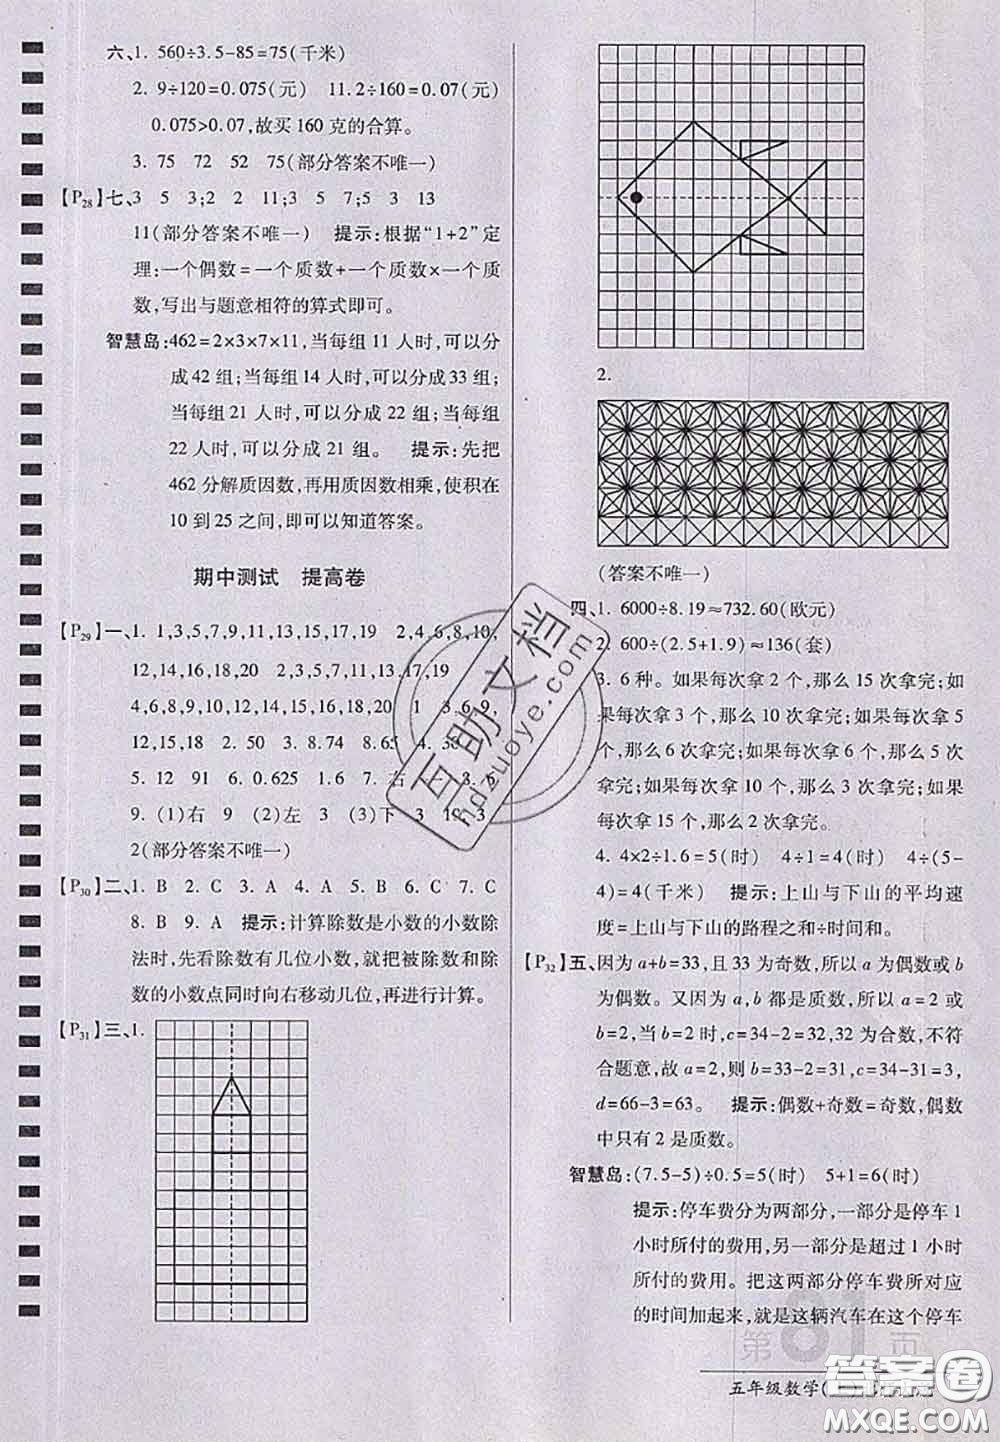 六、1. 560÷3.5-85=75(千米)
2. 9÷120=0.075(元) 11.2÷160=0.07(元)
0.075>0.07,故买 160 克的合算。
3. 75 72 52 75(部分答案不唯一)
【P28】七、3 5 3;2 2 11;3 5 7;5 3 13
11(部分答案不唯一) 提示:根据“1+2”定
理:一个偶数=一个质数+一个质数×一个质
数,写出与题意相符的算式即可。
智慧岛:462=2×3×7×11,当每组 11 人时,可以分
成 42 组;当每组 14 人时,可以分成 33 组;
当每组 21 人时,可以分成 22 组;当每组
22 人时,可以分成 21 组。 提示:先把
462 分解质因数,再用质因数相乘,使积在
10 到 25 之间,即可以知道答案。
期中测试 提高卷
【P29】一、1. 1,3,5,7,9,11,13,15,17,19 2,4,6,8,10,
12,14,16,18,20 2,3,5,7,11,13,17,19
4,6,8,9,10,12,14,15,16,18,20 1 3,6,9,
12,15,18 2. 90 3. 8.74 8.65 4. 30
5. 12 91 6. 0.625 1.6 7. 右
9. (1)右 9 (2)左 3 (3)下 3 3
2(部分答案不唯一)
【P30】二、1. B 2. C 3. A 4. B 5. C 6. C 7. C
8. B 9. A 提示:计算除数是小数的小数除
法时,先看除数有几位小数,就把被除数和除
数的小数点同时向右移动几位,再进行计算。
【P31】三、1.
2.
(答案不唯一)
四、1. 6000÷8.19≈732.60(欧元)
2. 600÷(2.5+1.9)≈136(套)
3. 6 种。如果每次拿 2 个,那么 15 次拿完;如
果每次拿 3 个,那么 10 次拿完;如果每次拿 5
个,那么 6 次拿完;如果每次拿 6 个,那么 5 次
拿完;如果每次拿 10 个,那么 3 次拿完;如果
每次拿 15 个,那么 2 次拿完。
4. 4×2÷1.6=5(时) 4÷1=4(时) 4÷(5-
4)=4(千米) 提示:上山与下山的平均速
度=上山与下山的路程之和÷时间和。
【P32】五、因为 a+b=33,且 33 为奇数,所以 a 为偶数或 b
为偶数。又因为 a,b 都是质数,所以 a=2 或
b=2,当 b=2 时,c=34-2=32,32 为合数,不符
合题意,故 a=2,则 b=33-2=31,c=34-31=3,
d=66-3=63。 提示:偶数+奇数=奇数,偶数
中只有 2 是质数。
智慧岛:(7.5-5)÷0.5=5(时) 5+1=6(时)
提示:停车费分为两部分,一部分是停车 1
小时所付的费用,另一部分是超过 1 小时
所付的费用。把这两部分停车费所对应
的时间加起来,就是这辆汽车在这个停车
第 61 页
五年级数学(上)
互助文档
hdzuoye.com
答案圈
MXQE.COM